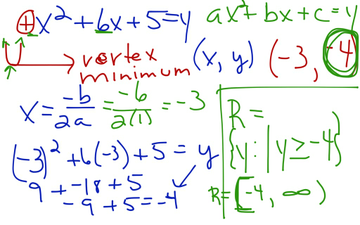 +x² + 6x + 5 = y
ax² + bx + c = y
vertex
minimum
(x, y) (-3, -4)
x = -b/2a = -6/2(1) = -3
(-3)² + 6(-3) + 5 = y
9 + -18 + 5
-9 + 5 = -4
R =
{y: | y ≥ -4}
R = [-4, ∞)